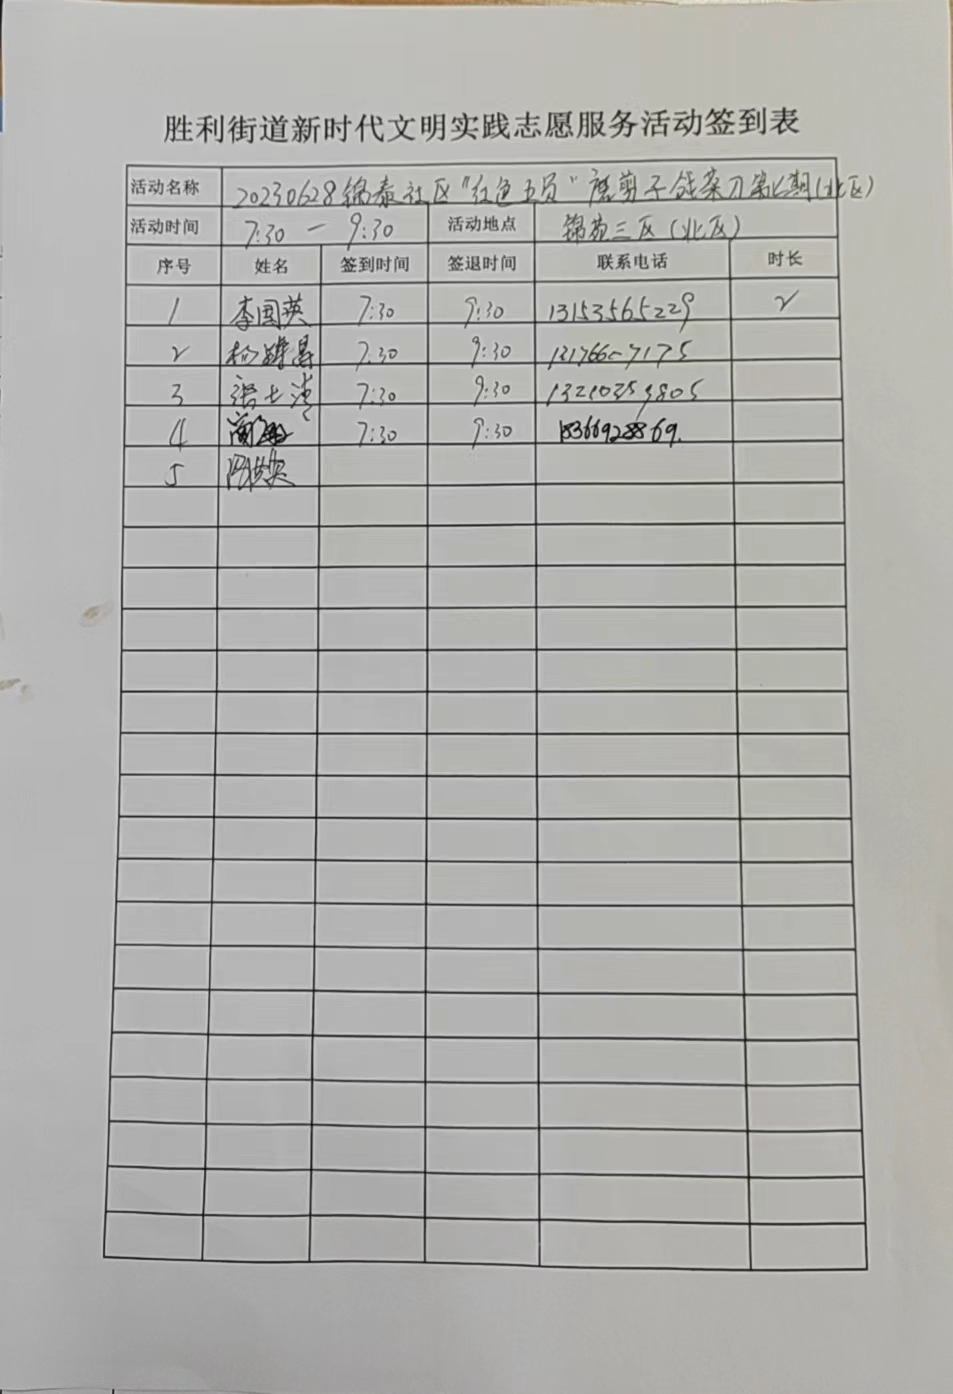 胜利街道新时代文明实践志愿服务活动签到表
活动名称 20230628锦泰社区"红色五员"磨剪子戗菜刀第七期(北区)
活动时间 7:30 — 9:30 活动地点 锦苑三区(北区)
序号 姓名 签到时间 签退时间 联系电话 时长
1 李国英 7:30 9:30 13153565229 2
2 7:30 9:30
3 张士清 7:30 9:30
4 7:30 9:30 18366928869.
5